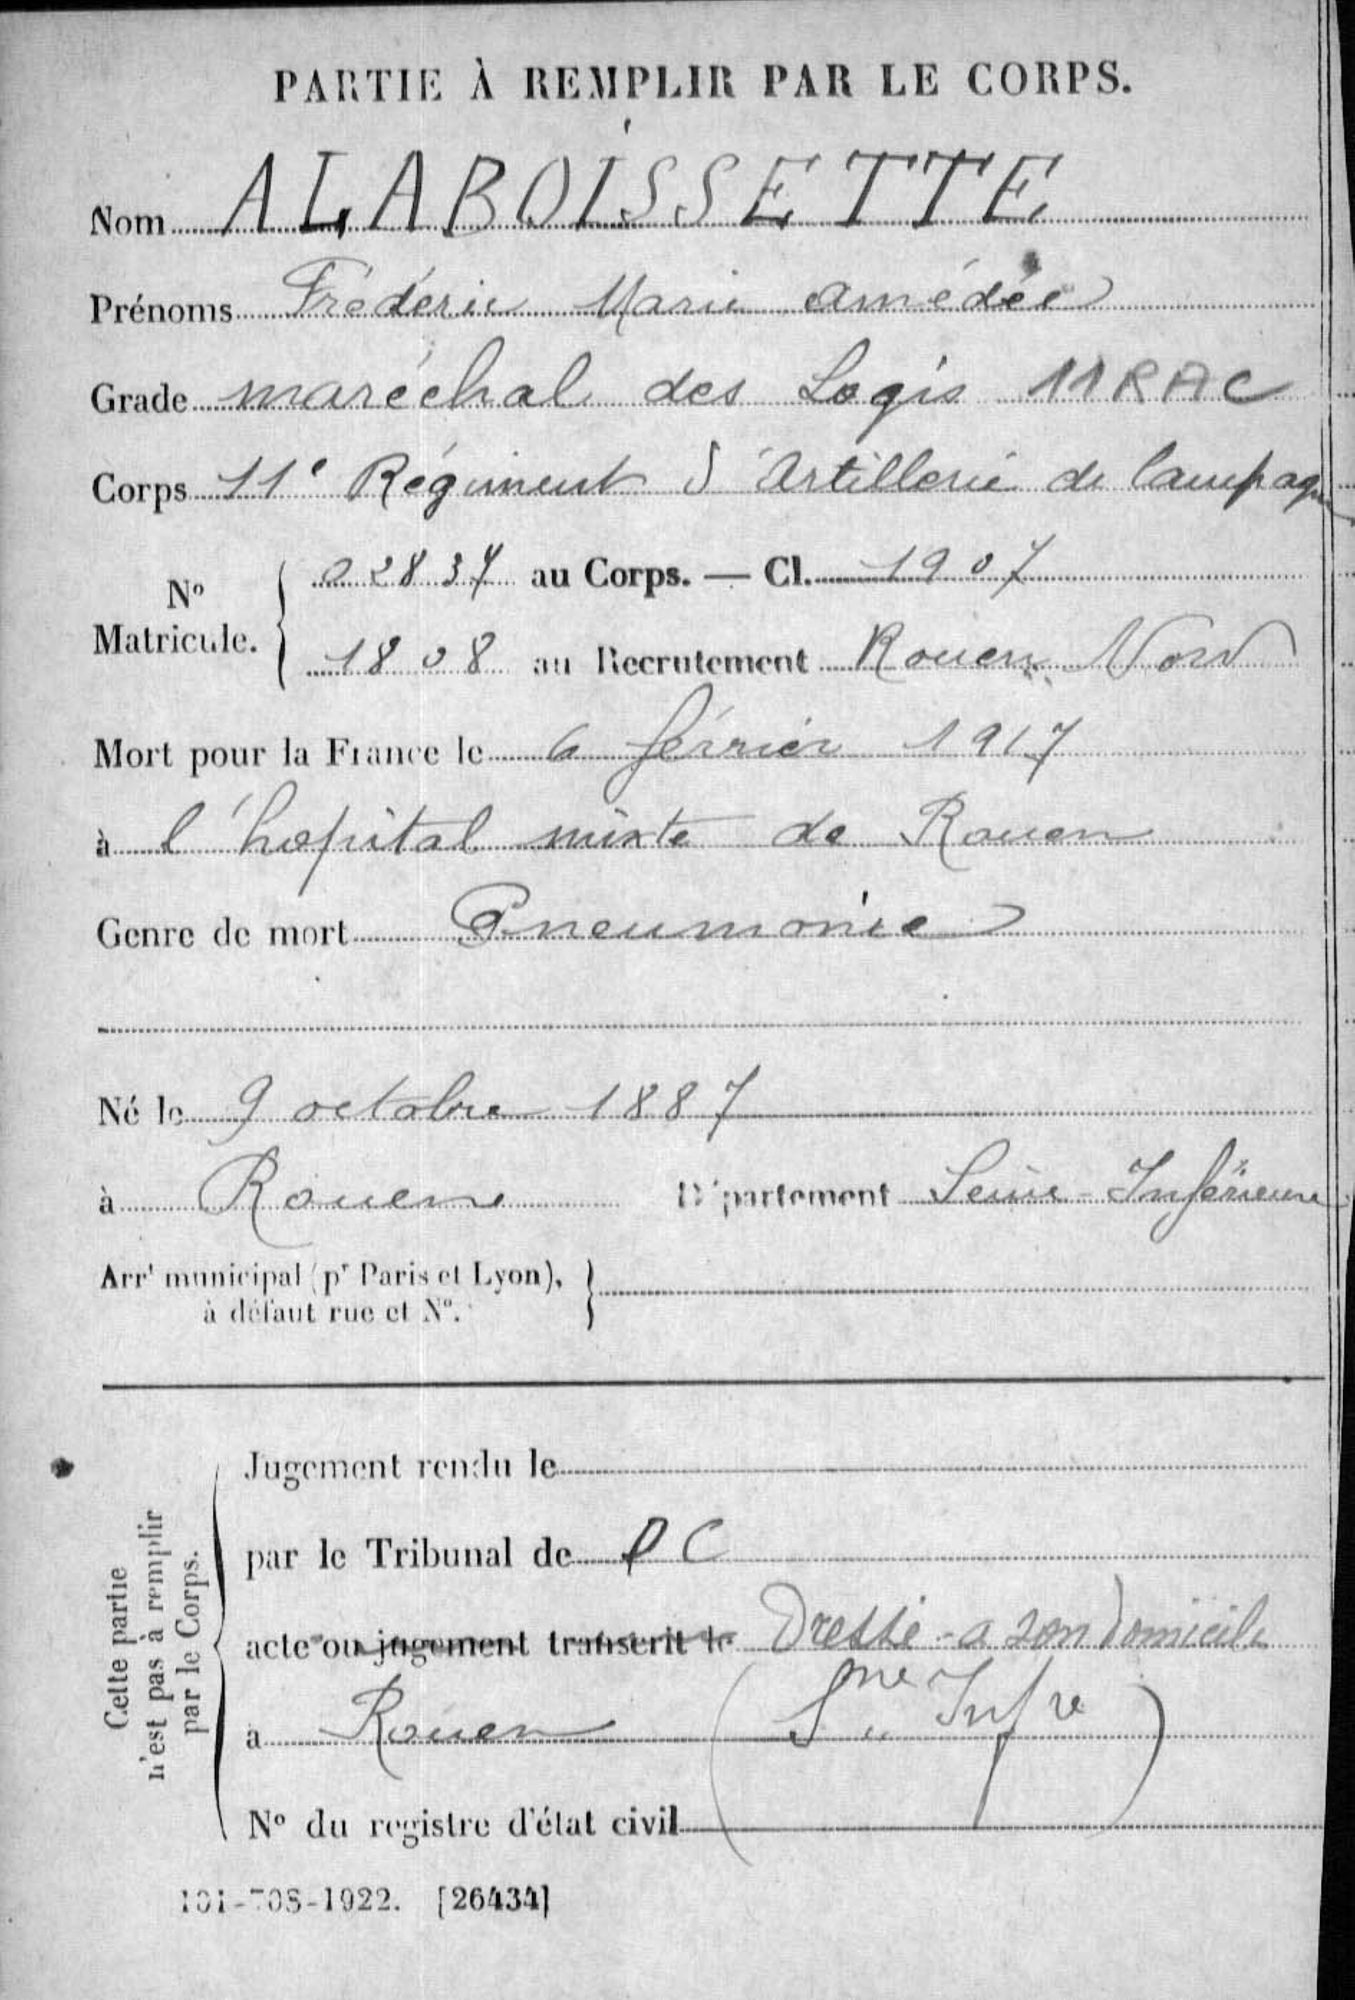 PARTIE À REMPLIR PAR LE CORPS.
Nom ALABOISSETTE
Prénoms Frédéric Marie Amédée
Grade maréchal des Logis 11 RAC
Corps 11e Régiment d'Artillerie de Campagne
No Matricule. 02837 au Corps. — Cl. 1907
1808 au Recrutement Rouen Nord
Mort pour la France le 6 février 1917
à l'hopital mixte de Rouen
Genre de mort Pneumonie
Né le 9 octobre 1887
à Rouen Département Seine-Inférieure
Arrt municipal (pr Paris et Lyon),
à défaut rue et No.
Cette partie
n'est pas à remplir
par le Corps.
Jugement rendu le
par le Tribunal de DC
acte ou jugement transcrit le Dressé a son domicile
à Rouen (Sne Infre)
No du registre d'état civil
101-708-1922. [26434]